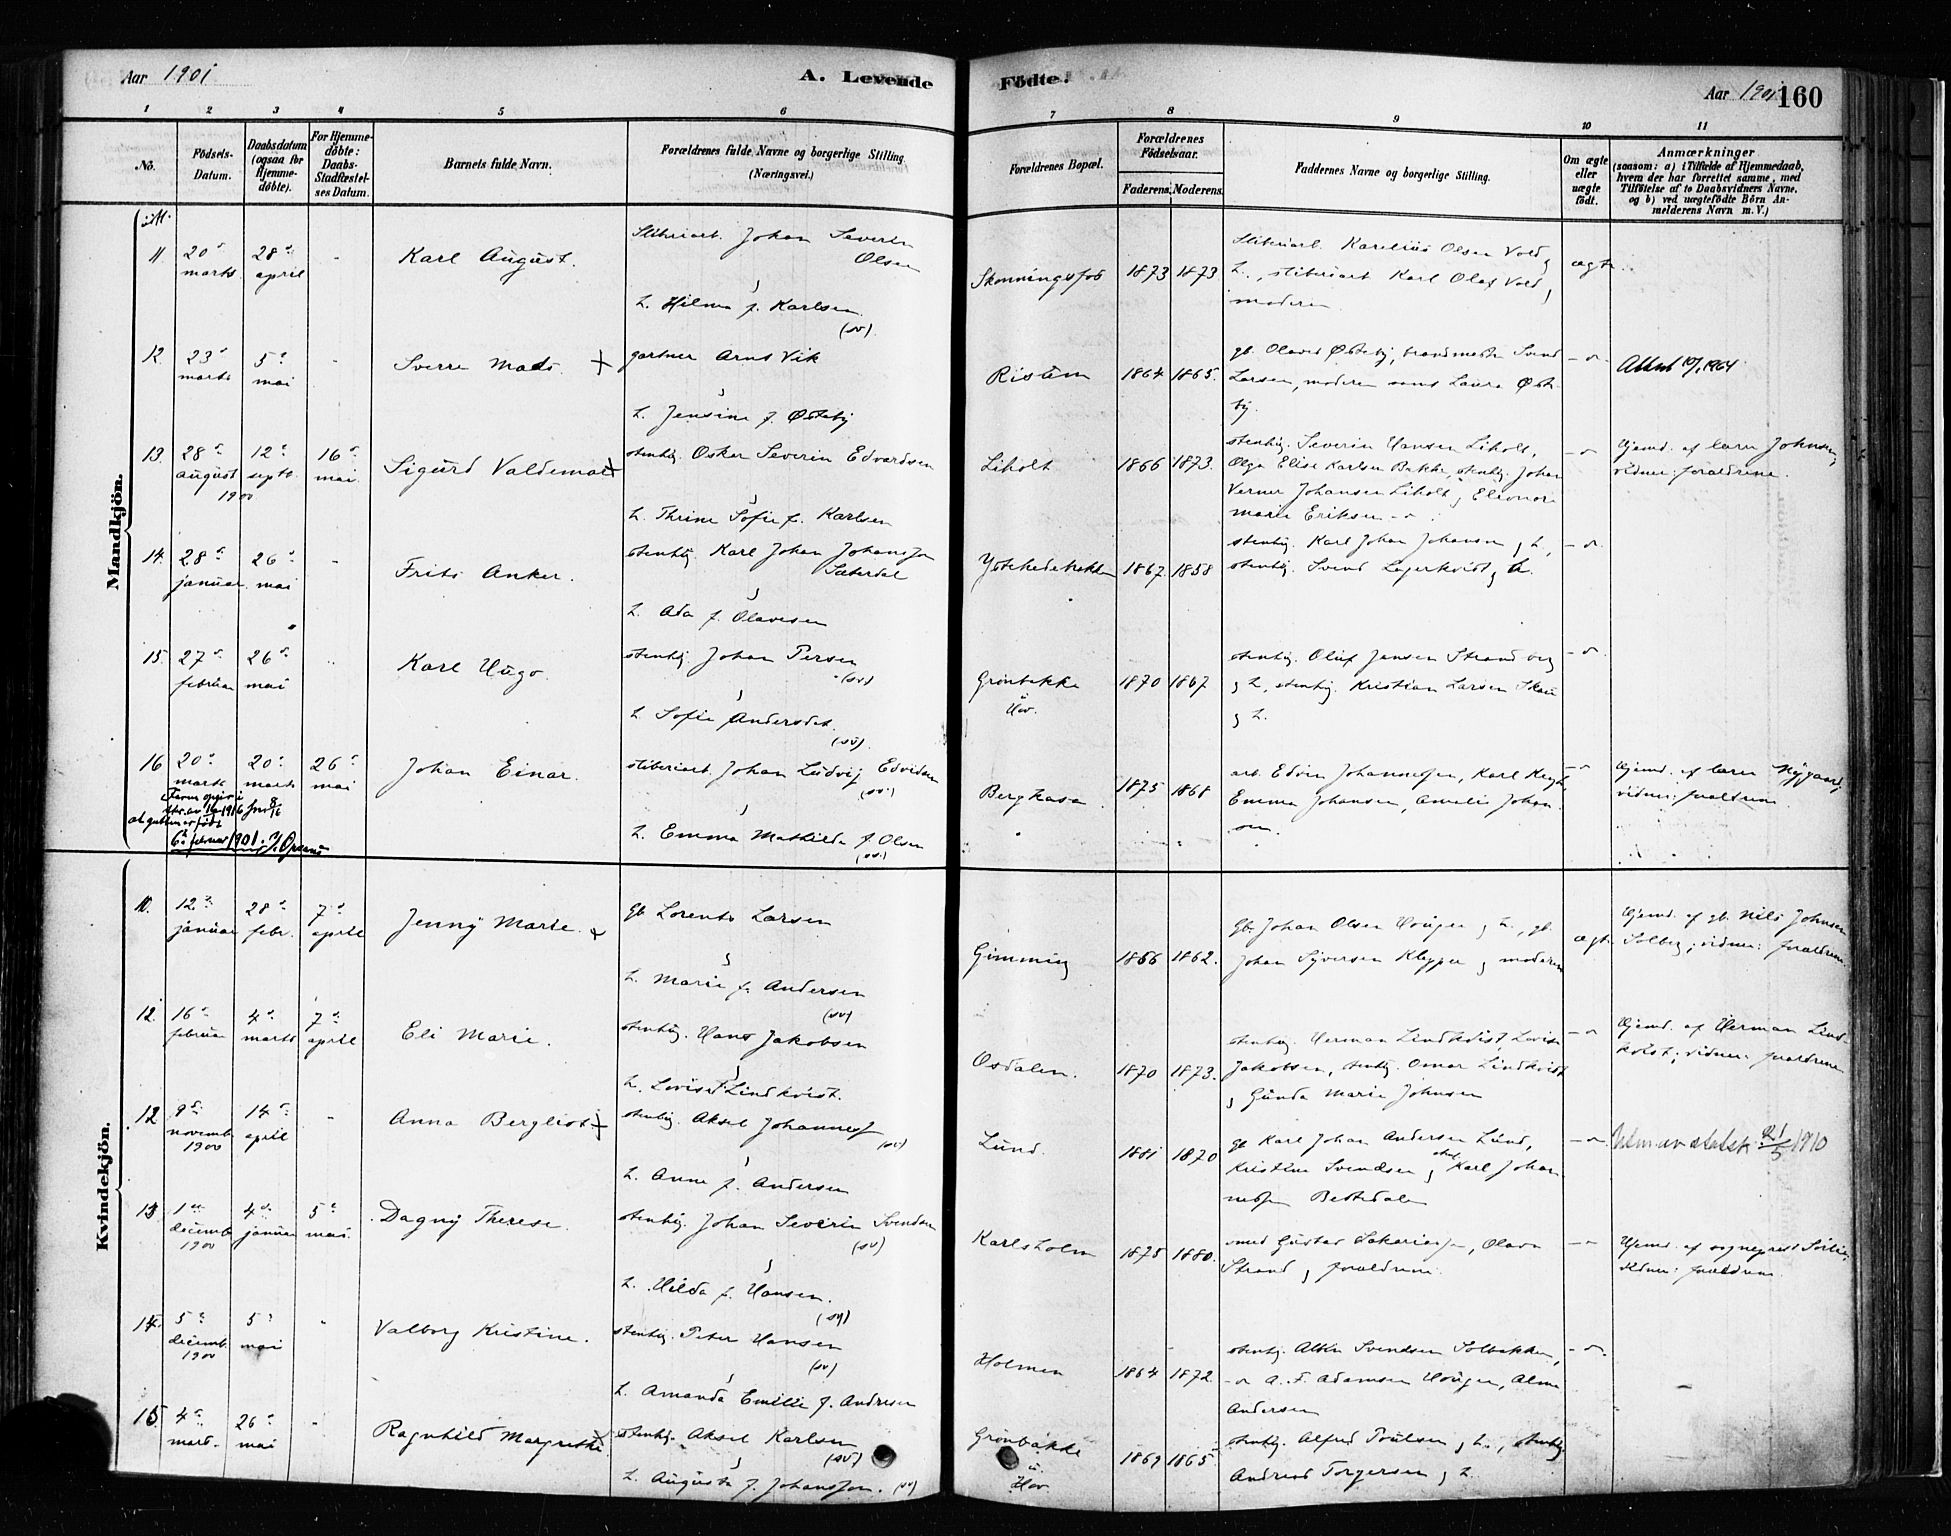 Aar 1901
A. Levende
Födte.
Aar 1901
160
1 2 3 4 5 6 7 8 9 10 11
No.
Födsels-
Datum.
Daabsdatum
(ogsaa for
Hjemme-
döbte).
For Hjemme-
döbte:
Daabs-
Stadfæstel-
ses Datum.
Barnets fulde Navn.
Forældrenes fulde Navne og borgerlige Stilling
(Næringsvei.)
Forældrenes Bopæl.
Forældrenes
Födselsaar.
Faderens. Moderens.
Faddernes Navne og borgerlige Stilling.
Om ægte
eller
uægte
födt.
Anmærkninger
(saasom: a) i Tilfælde af Hjemmedaab,
hvem der har forrettet samme, med
Tilföielse af to Daabsvidners Navne,
og b) ved uægtefödte Börn An-
melderens Navn m. V.)
Mandkjön.
11 20de marts 28de april - Karl August.
Stiberiarb. Johan Severin
Olsen
h. Hilma f. Karlsen
(sv).
Skonningsfos 1873 1873
Stiberiarb. Karelius Olsen Vold og
h., stiberiarb Karl Olaf Vold og
moderen
ægte
12. 23de marts 5te mai - Sverre Mads. +
gartner Arnt Vik
og
h. Jensine f. Østeby
Ristem 1864 1865.
gb. Olaves Østeby, Svend
Larsen, moderen samt Laura Øste-
by.
-"-
Attest 1964
13. 28de august 1900 12te septb. 16de mai Sigurd Valdemar +
stenhg. Oskar Severin Edvardsen
og
h. Thrine Sofie f. Karlsen
Liholt 1866 1873.
stenhg. Severin Hansen Liholt,
Olga Elise Karlsen Bakke, stenhg. Johan
Verner Johansen Liholt og Eleonore
Marie Eriksen -"-
-"-
Hjemd. af lærer Johnsen,
vidner: forældrene.
14. 28de januar 26de mai - Frits Anker.
stenhg. Karl Johan Johansson
Sæterdal
og
h. Ada f. Olavesen
1867 1858
stenhg. Karl Johan Johansen og h.,
stenhg. Svend Lagerkvist og h.
-"-
15. 27de februar 26de mai - Karl Hugo.
stenhg Johan Persen
(sv)
og
h Sofie Andersdat.
(sv).
Grønbakke
Hov.
1870 1867
stenhg. Oluf Jensen Strandberg
og h, stenhg. Kristian Larsen Skau
og h.
-"-
16 20de marts 20de marts 26de mai Johan Einar.
stiberiarb. Johan Ludvig Edvidsen
(sv.)
og
h. Emma Mathilde f. Olsen
(sv.)
at gutten er født
6te februar 1901.
Bergkasa. 1875 1868
arb. Edvin Johannessen, Karl
Emma Johansen, Amelie Johan-
sen.
-"-
Hjemd. af lærer Nygaard,
vidner: forældrene
Kvindekjön.
11. 12te januar 28de febr. 7de april Jenny Marie. +
gb. Lorents Larsen
og
h. Marie f. Andersen
(sv)
Gimming 1866 1862.
gb. Johan Olsen Houger og h., gb.
Johan Syversen Klepper og moderen
ægte
Hjemd. af gb. Nils Johnsen
Solberg; vidner: forældrene.
12. 16de februar 4de marts 7de april Eli Marie.
stenhug. Hans Jakobsen
og
h. Lovise f Lindkvist.
Osdalen. 1870 1873.
stenhg. Herman Lindkvist, Lovise
Jakobsen, stenhg. Omar Lindkvist
og Gunda Marie Johnsen
-"-
Hjemd. af Herman Lind-
kvist; vidner: forældrene
12 9de novemb. 1900 14de april - Anna Bergliot +
stenhg. Aksel Johannessen
(sv)
h. Anne f. Andersen
Lund. 1881 1870
gb Karl Johan Andersen Lund,
Kristine Svendsen og Karl Johan-
nessen Bestedalen
-"-
Utm. av statsk. 21/5 1910
13. 1ste decemb. 1900 4de januar 5te mai. Dagny Therese.
stenhg. Johan Severin Svendsen
(sv)
og
h. Hilda f. Hansen.
(sv)
Karlsholm 1875 1880.
smed Gustav Sakariassen, Olava
Strand og forældrene.
-"-
Hjemd. af sogneprest Sörlie,
vidner: forældrene.
14. 5te decemb. 1900 5te mai - Valborg Kristine.
stenhg. Peter Hansen
(sv)
og
h. Amanda Emilie f. Andresen
Holmen 1864 1872.
stenhg. Svendsen Solbakken,
-"- A. F. Adamsen Houger, Alma
Andersen
-"-
15. 4de marts. 26de mai - Ragnhild Margrethe +
stenhg. Aksel Karlsen
(sv)
og
h. Augusta f. Johansson. (sv)
Grönbakke
Hov
1869 1865
stenhg. Alfred Poulsen og h., stenhg.
Andreas Torgersen og h.